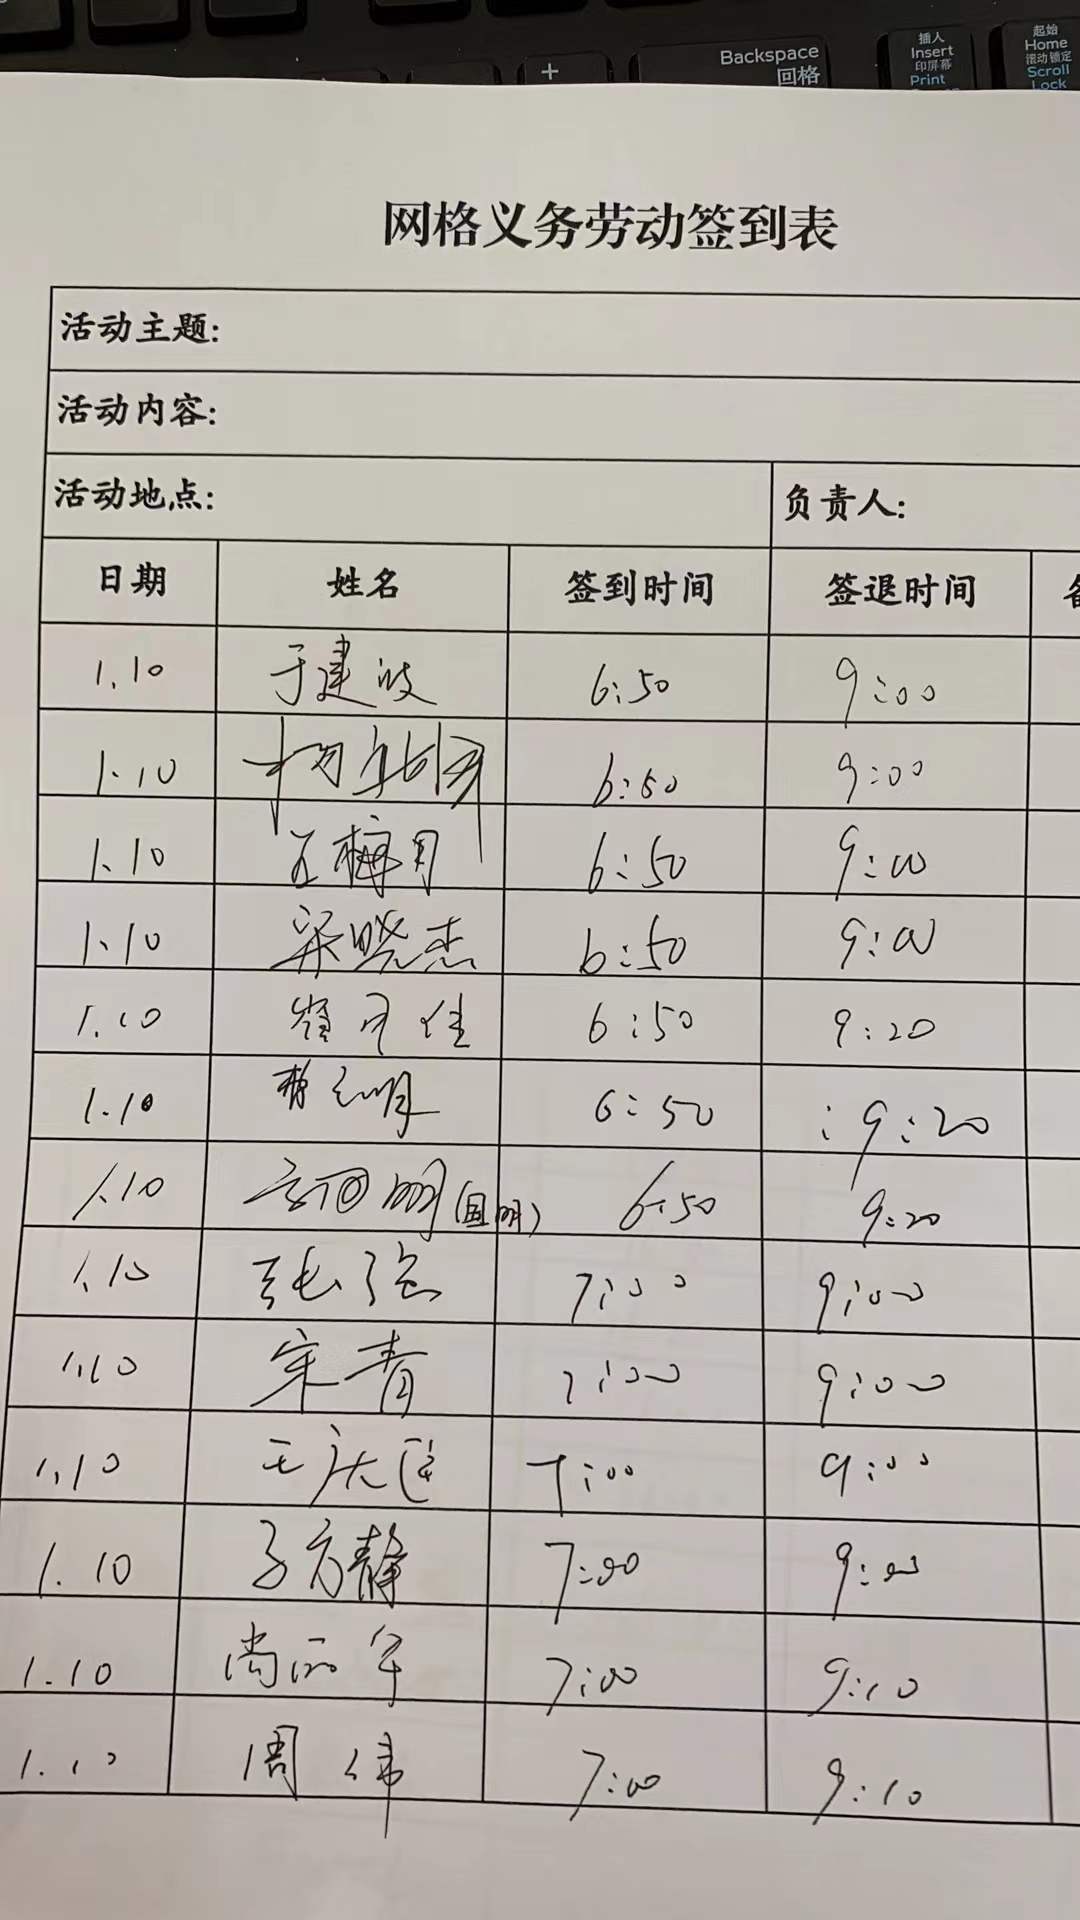 Backspace
回格
插入
Insert
印屏幕
Print
起始
Home
滚动锁定
Scroll
Lock
网格义务劳动签到表
活动主题:
活动内容:
活动地点: 负责人:
日期 姓名 签到时间 签退时间
1.10 于建波 6:50 9:00
1.10 6:50 9:00
1.10 王梅月 6:50 9:00
1.10 梁晓杰 6:50 9:00
1.10 佳 6:50 9:20
1.10 曹 6:50 :9:20
1.10 明 6:50 9:20
1.10 张强 7:00 9:00
1.10 宋青 7:00 9:00
1.10 王庆 7:00 9:00
1.10 方静 7:00 9:00
1.10 尚 军 7:00 9:10
1.10 周伟 7:00 9:10